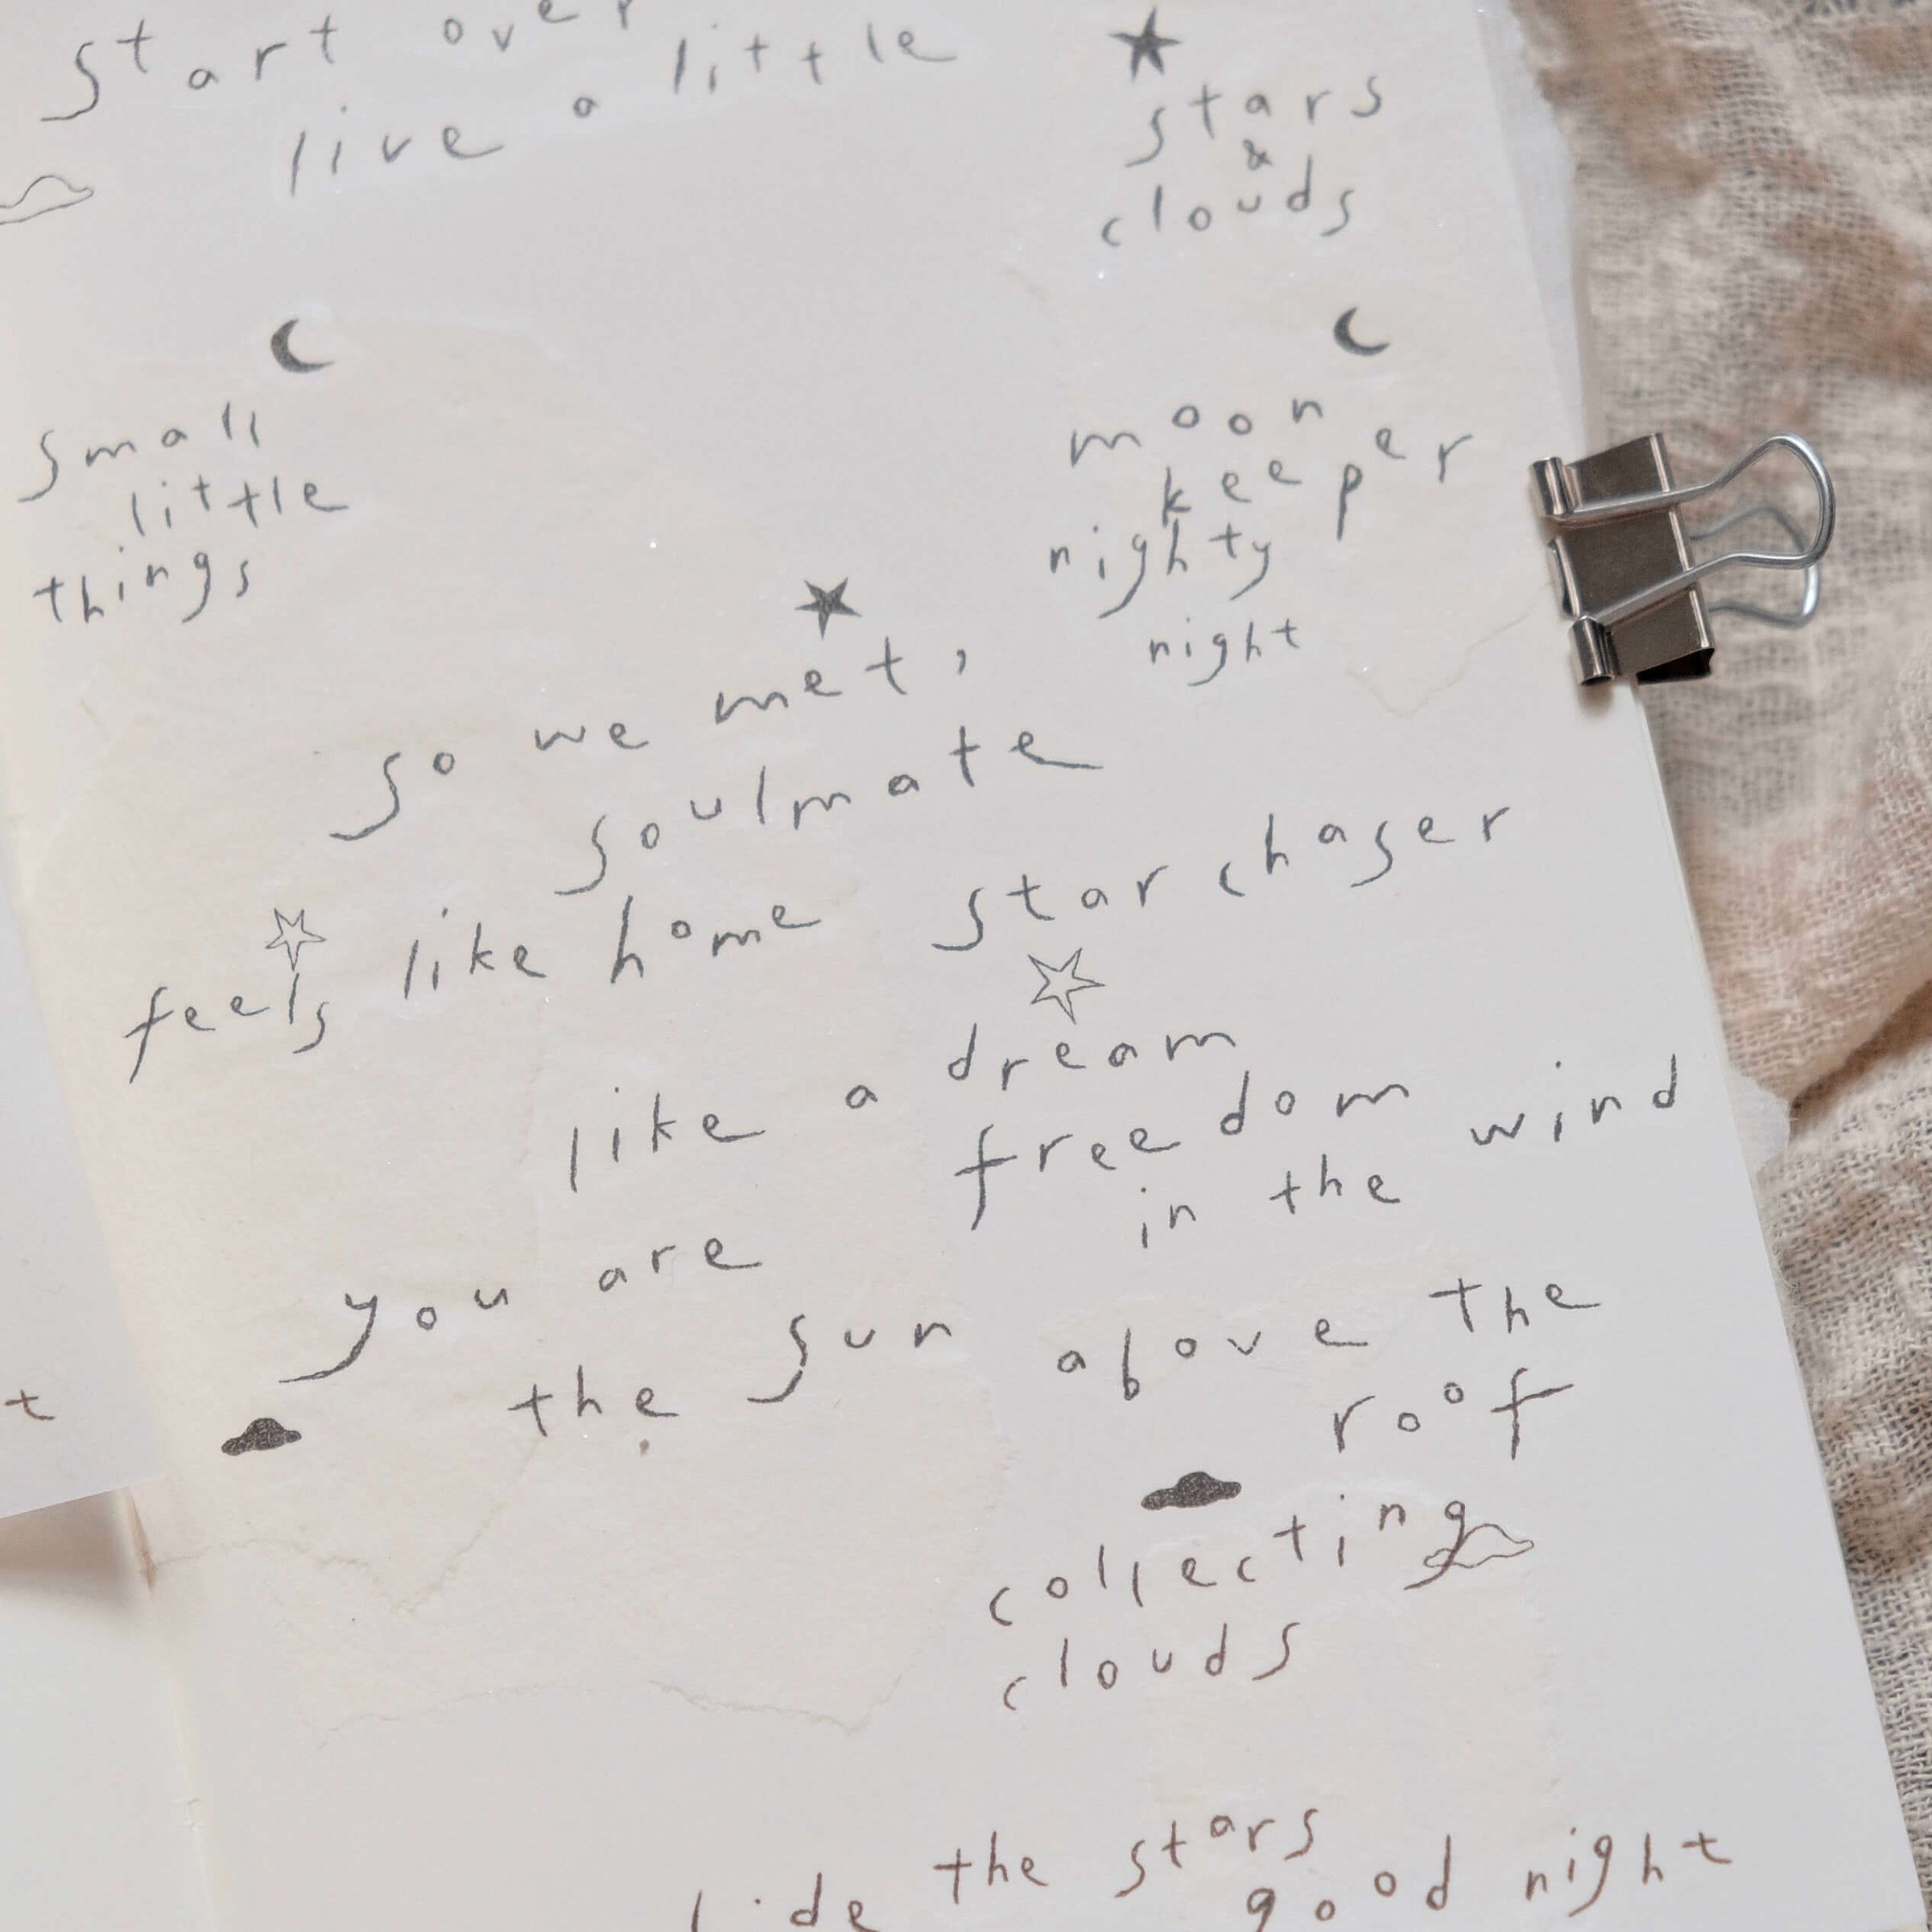 start over
live a little
stars
&
clouds
small
little
things
moon
keeper
nighty
night
so we met,
soulmate
star chaser
feels like home
like a dream
freedom
in the wind
you are
the sun above the
roof
collecting
clouds
the stars
good night
t